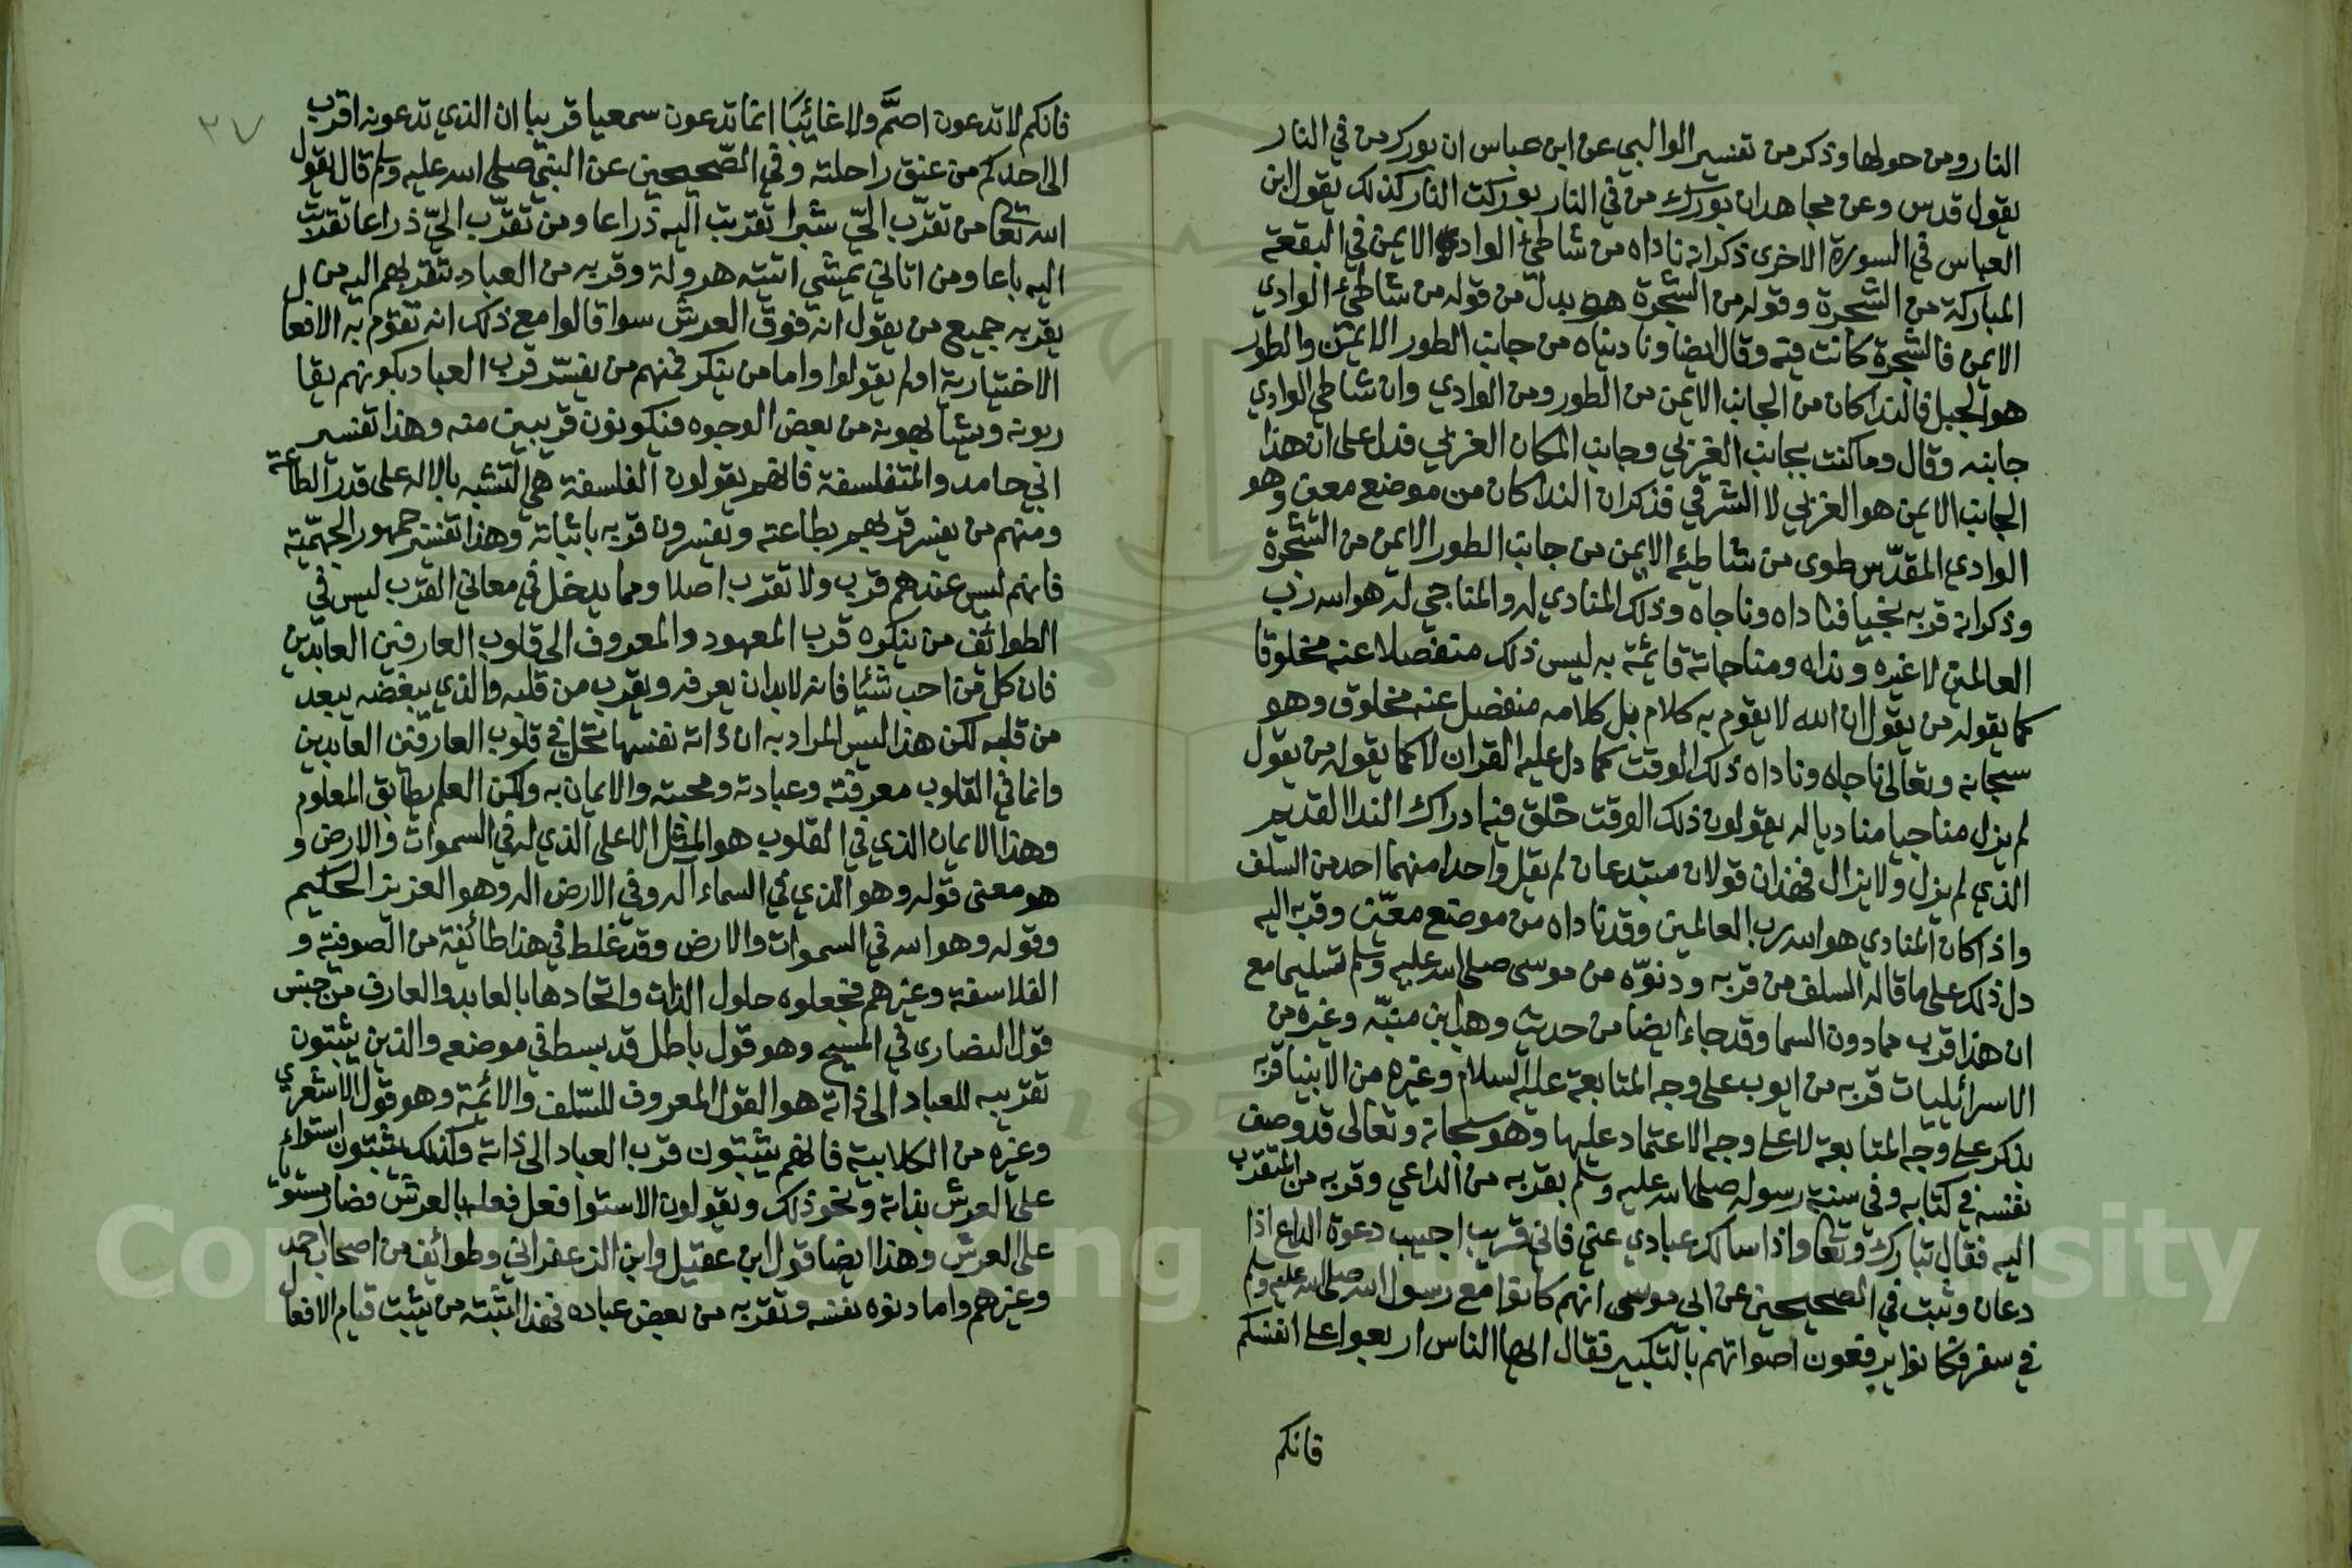 النار ومن حولها وذكر من تفسير الوالبي عن ابن عباس ان بورك من في النار
يقول قدس وعن مجاهد ان بورك من في النار بوركت النار كذلك يقول ابن
العباس في السورة الاخرى ذكر انه ناداه من شاطئ الوادي الايمن في البقعة
المباركة من الشجرة وقوله من الشجرة هو بدل من قوله من شاطئ الوادي
الايمن فالشجرة كانت فيه وقال ايضا وناديناه من جانب الطور الايمن والطور
هو الجبل فالندا كان من الجانب الايمن من الطور ومن الوادي وان شاطي الوادي
جانبه وقال وما كنت بجانب الغربي وجانب المكان الغربي فدل على ان هذا
الجانب الايمن هو الغربي لا الشرقي فذكر ان الندا كان من موضع معين وهو
الوادي المقدس طوى من شاطئه الايمن من جانب الطور الايمن من الشجرة
وذكر انه قربه نجيا فناداه وناجاه وذلك المنادي له والمناجي له هو الله رب
العالمين لا غيره ونداه ومناجاته قائمة به ليس ذلك منفصلا عنه مخلوقا
كما يقوله من يقول ان الله لا يقوم به كلام بل كلامه منفصل عنه مخلوق وهو
سبحانه وتعالى ناجاه وناداه ذلك الوقت كما دل عليه القران لا كما يقوله من يقول
لم يزل مناجيا مناديا له يقولون ذلك الوقت خلق فيه ادراك الندا القديم
الذي لم يزل ولا يزال فهذان قولان مبتدعان لم يقل واحدا منهما احد من السلف
واذا كان المنادي هو الله رب العالمين وقد ناداه من موضع معين وقربه اليه
دل ذلك على ما قاله السلف من قربه ودنوه من موسى صلى الله عليه وسلم تسليما مع
ان هذا قرب مما دون السما وقد جاء ايضا من حديث وهب ابن منبه وغيره من
الاسرائيليات قربه من ايوب على وجه المتابعة عليه السلام وغيره من الانبيا قربه
يذكر على وجه المتابعة لا على وجه الاعتماد عليها وهو سبحانه وتعالى قد وصف
نفسه في كتابه وفي سنة رسوله صلى الله عليه وسلم بقربه من الداعي وقربه من المتقرب
اليه فقال تبارك وتعا واذا سالك عبادي عني فاني قريب اجيب دعوة الداع اذا
دعان وثبت في الصحيحين عن ابي موسى انهم كانوا مع رسول الله صلى الله عليه وسلم
في سفر فكانوا يرفعون اصواتهم بالتكبير فقال ايها الناس اربعوا على انفسكم
فانكم
٢٧
فانكم لا تدعون اصمّ ولا غائبًا انما تدعون سمعيا قريبا ان الذي تدعونه اقرب
الى احدكم من عنق راحلته وفي الصّحيحين عن النبي صلى الله عليه وسلم قال يقول
الله تعا من تقرّب اليّ شبرا تقربت اليه ذراعا ومن تقرّب اليّ ذراعا تقربت
اليه باعا ومن اتاني يمشي اتيته هرولة وقربه من العباد بتقربهم اليه من ل
يقر به جميع من يقول انه فوق العرش سوا قالوا مع ذلك انه تقوم به الافعا
الاختيارية او لم يقولوا واما من ينكر فمنهم من يفسّر قرب العباد بكونهم يقا
ربونه ويشابهونه من بعض الوجوه فيكونون قريبين منه وهذا تفسير
ابي حامد والمتفلسفة فانهم يقولون الفلسفة هي التشبه بالاله على قدر الطاقة
ومنهم من يفسر قربهم بطاعته ويفسرون قربه باثباته وهذا تفسير جمهور الجهمّية
فانهم ليس عندهم قرب ولا تقرب اصلا ومما يدخل في معاني القرب ليس في
الطوائف من ينكره قرب المعهود والمعروف الى قلوب العارفين العابدين
فان كل من احب شيئا فانه لا بد ان يعرفه ويقرب من قلبه والذي يبغضه يبعد
من قلبه لكن هذا ليس المراد به ان ذاته نفسها تحل في قلوب العارفين العابدين
وانما في القلوب معرفته وعبادته ومحبته والايمان به ولكن العلم يطابق المعلوم
وهذا الايمان الذي في القلوب هو المثل الاعلى الذي له في السموات والارض و
هو معنى قوله وهو الذي في السماء اله وفي الارض اله وهو العزيز الحكيم
وقوله وهو الله في السموات والارض وقد غلط في هذا طائفة من الصوفية و
الفلاسفة وغيرهم فجعلوه حلول الذات واتحادها بالعابد والعارف من جنس
قول النصارى في المسيح وهو قول باطل قد بسط في موضعه والذين يثبتون
تقريبه للعباد الى ذاته هو القول المعروف للسّلف والائمة وهو قول الاشعري
وغيره من الكلابية فانهم يثبتون قرب العباد الى ذاته وكذلك يثبتون استواء
على العرش بذاته ونحو ذلك ويقولون الاستوا فعل فعله بالعرش فصار مستو
على العرش وهذا ايضا قول ابن عقيل وابن الزعفراني وطوائف من اصحاب احمد
وغيرهم واما دنوه نفسه وتقربه من بعض عباده فهذا يثبته من يثبت قيام الافعال